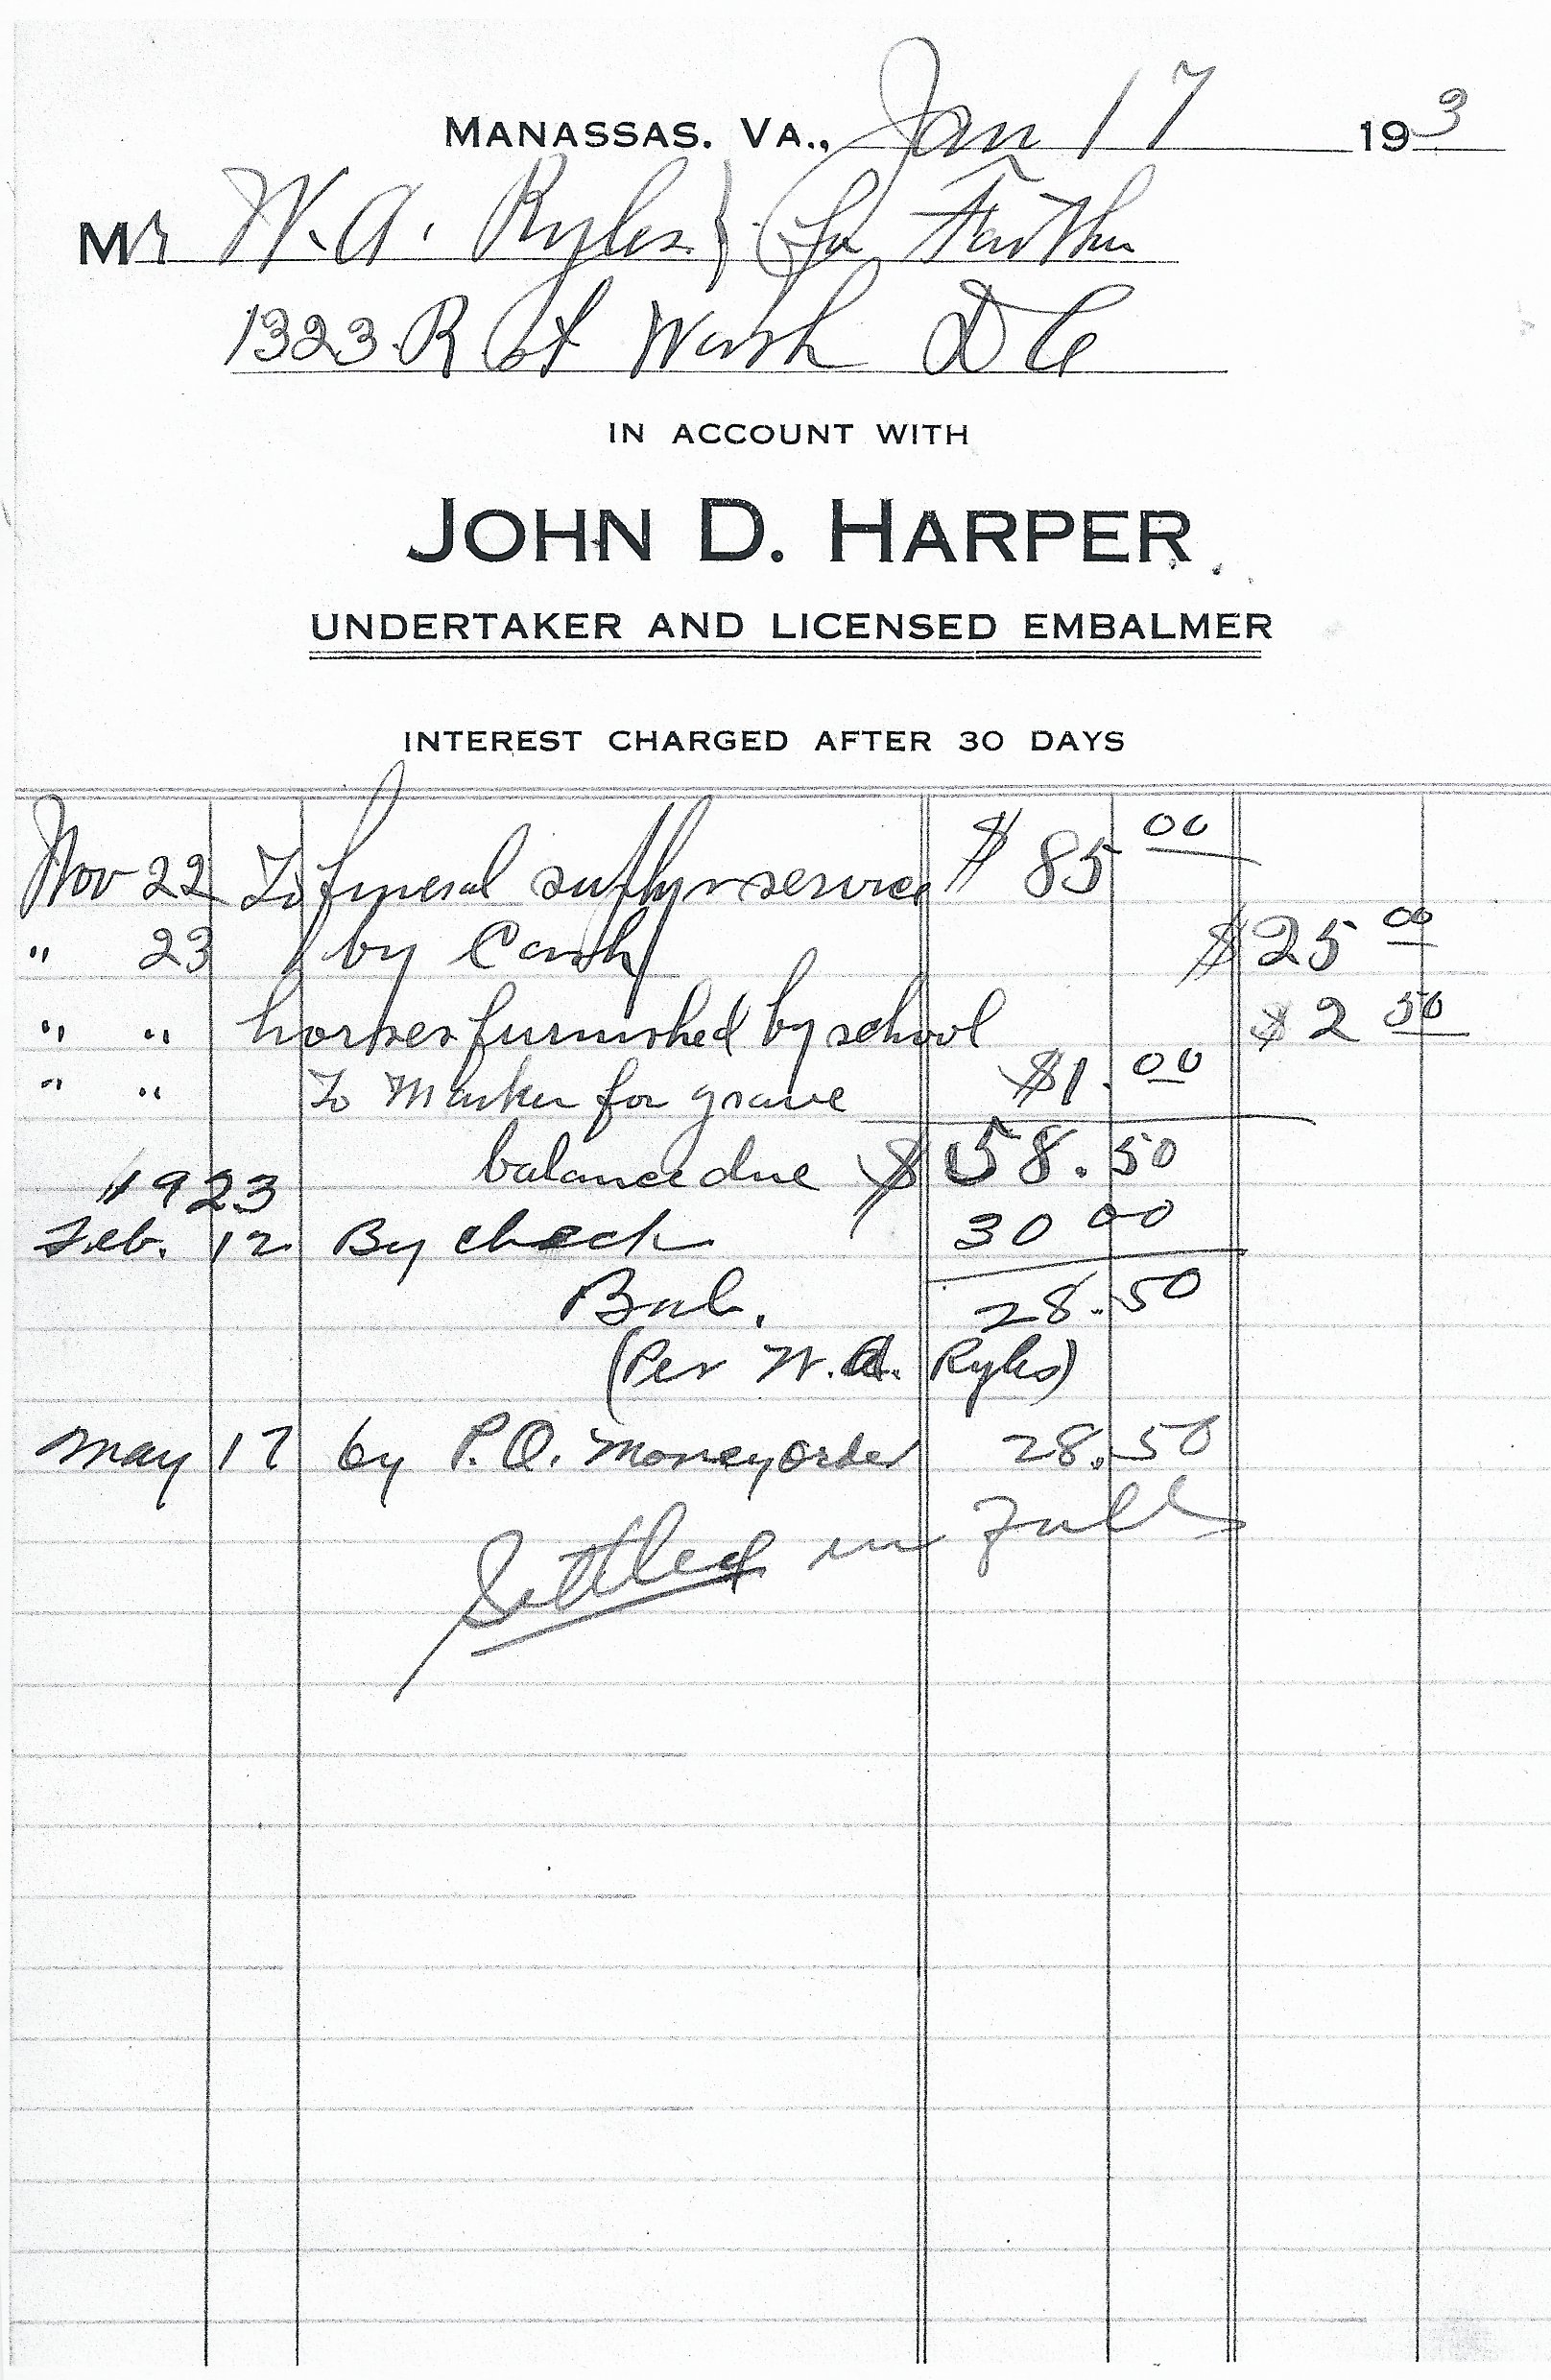 MANASSAS. VA., Jan 17 193
Mr W. A. Ryles } (for Farther
1323 R St Wash D C
IN ACCOUNT WITH
JOHN D. HARPER
UNDERTAKER AND LICENSED EMBALMER
INTEREST CHARGED AFTER 30 DAYS
Nov 22 To funeral supply service $ 85 00
" 23 by Cash $25 00
" " horses furnished by school $2 50
" " To Marker for grave $1.00
balance due $58.50
1923
Feb. 12 By check 30 00
Bal. 28.50
(Per W.A. Ryles)
May 17 by P.O. Money order 28.50
Settled in full